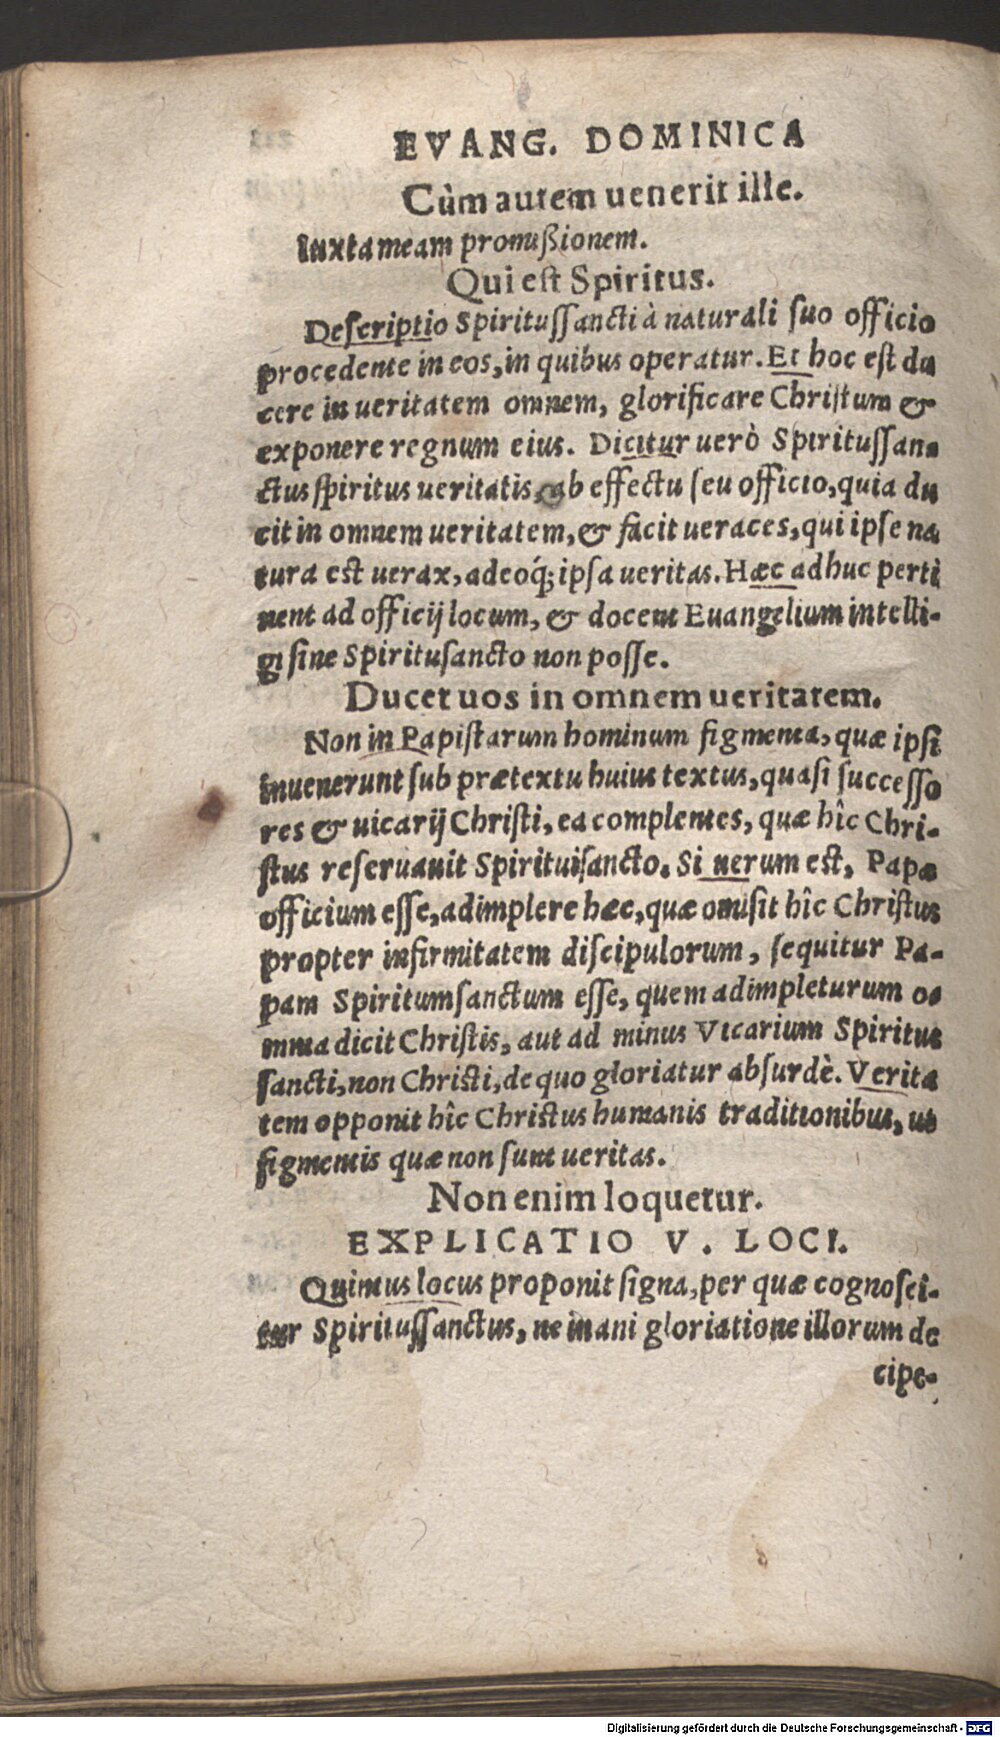 EVANG. DOMINICA
Cùm autem uenerit ille.
Iuxta meam promißionem.
Qui est Spiritus.
Descriptio Spiritussancti à naturali suo officio
procedente in eos, in quibus operatur. Et hoc est du
cere in ueritatem omnem, glorificare Christum &
exponere regnum eius. Dicitur uerò Spiritussan-
ctus spiritus ueritatis, ab effectu seu officio, quia du
cit in omnem ueritatem, & facit ueraces, qui ipse na
tura est uerax, adeoq́; ipsa ueritas. Hæc adhuc perti
nent ad officij locum, & docent Euangelium intelli-
gi sine Spiritusancto non posse.
Ducet uos in omnem ueritatem.
Non in Papistarum hominum figmenta, quæ ipsi
inuenerunt sub prætextu huius textus, quasi successo
res & uicarij Christi, ea complentes, quæ hîc Chri-
stus reseruauit Spirituisancto. Si uerum est, Papæ
officium esse, adimplere hæc, quæ omisit hîc Christus
propter infirmitatem discipulorum, sequitur Pa-
pam Spiritumsanctum esse, quem adimpleturum o-
mnia dicit Christis, aut ad minus Vicarium Spiritus
sancti, non Christi, de quo gloriatur absurdè. Verita
tem opponit hîc Christus humanis traditionibus, ut
figmentis quæ non sunt ueritas.
Non enim loquetur.
EXPLICATIO V. LOCI.
Quintus locus proponit signa, per quæ cognosci-
tur Spiritussanctus, ne inani gloriatione illorum de
cipe-
Digitalisierung gefördert durch die Deutsche Forschungsgemeinschaft - DFG